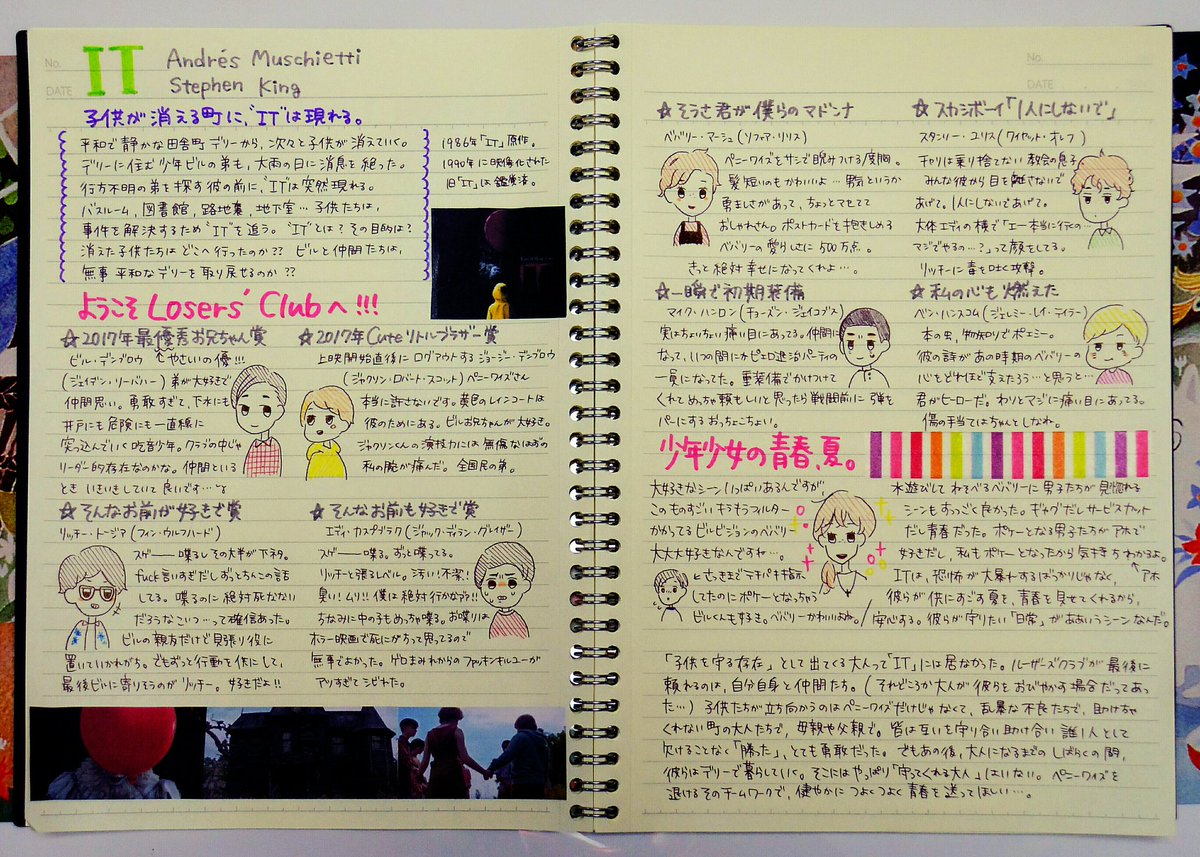 No.
DATE
IT
Andrés Muschietti
Stephen King
子供が消える町に、"IT"は現れる。
平和で静かな田舎町デリーから、次々と子供が消えていく。
デリーに住む少年ビルの弟も、大雨の日に消息を絶った。
行方不明の弟を探す彼の前に、"IT"は突然現れる。
バスルーム、図書館、路地裏、地下室… 子供たちは、
事件を解決するため"IT"を追う。"IT"とは?その目的は?
消えた子供たちはどこへ行ったのか?? ビルと仲間たちは、
無事平和なデリーを取り戻せるのか??
1986年「IT」原作。
1990年に映像化された
旧「IT」は鑑賞済。
ようこそ Losers' Club へ!!!
☆2017年最優秀お兄ちゃん賞
ビル・デンブロウ やさしいの優!!!
(ジェイデン・リーバハー) 弟が大好きで
仲間思い。勇敢すぎて、下水にも
井戸にも危険にも一直線に
突っ込んでいく吃音少年。クラブの中じゃ
リーダー的存在なのかな。仲間といる
とき いきいきしていて良いです…
☆2017年Cuteリトルブラザー賞
上映開始直後にログアウトするジョージー・デンブロウ
(ジャクソン・ロバート・スコット) ペニーワイズさん
本当に許さないです。黄色のレインコートは
彼のためにある。ビルお兄ちゃんが大好き。
ジャクソンくんの演技力には無傷なはずの
私の腕が痛んだ。全国民の弟。
☆そんなお前が好きで賞
リッチー・トージア (フィン・ウルフハード)
スゲー喋るしその大半が下ネタ。
fuck言いすぎだしずっとちんこの話
してる。喋るのに絶対死なない
だろうなこいつ…って確信あった。
ビルの親友だけど見張り役に
置いていかれがち。でもずっと行動を供にして、
最後ビルに寄りそうのがリッチー。好きだよ!!
☆そんなお前も好きで賞
エディ・カスプブラク (ジャック・ディラン・グレイザー)
スゲー喋る。ずっと喋ってる。
リッチーと張るレベル。汚い!不潔!
臭い!ムリ!!僕は絶対行かない!!!
ちなみに中の子もめっちゃ喋る。お喋りは
ホラー映画で死にがちって思ってるので
無事でよかった。ゲロまみれからのファッキンキルユーが
アツすぎてシビれた。
No.
DATE
☆そうさ君が僕らのマドンナ
ベバリー・マーシュ (ソフィア・リリス)
ペニーワイズをサシで睨みつける度胸。
髪短いのもかわいいよ… 男気というか
勇ましさがあって、ちょっとマセてて
おしゃれさん。ポストカードを抱きしめる
ベバリーの愛らしさに500万点。
きっと絶対幸せになってくれよ…。
☆スカシボーイ「1人にしないで」
スタンリー・ユリス (ワイアット・オレフ)
チャリは乗り捨てない教会の息子
みんな彼から目を離さないで
あげて。1人にしないであげて。
大体エディの横で「エー本当に行くの…
マジでやるの…?」って顔をしてる。
リッチーに毒を吐く攻撃。
☆一瞬で初期装備
マイク・ハンロン (チョーズン・ジェイコブス)
実はちょいちょい痛い目にあってる。仲間に
なって、いつの間にかピエロ退治パーティの
一員になってた。重装備でかけつけて
くれてめっちゃ頼もしいと思ったら戦闘前に弾を
パーにするおっちょこちょい。
☆私の心も燃えた
ベン・ハンスコム (ジェレミー・レイ・テイラー)
本の虫、物知りでポエミー。
彼の詩があの時期のベバリーの
心をどれほど支えたろう…と思うと…
君がヒーローだ。わりとマジに痛い目にあってる。
傷の手当てはちゃんとしなね。
少年少女の青春、夏。
大好きなシーンいっぱいあるんですが、
このものすっごいキラもうフィルター
かかってるビルビジョンのベバリー
大大大好きなんですね…。
さっきまでテキパキ指示
してたのにポケーとなっちゃう
ビルくんも好き。ベバリーかわいいよね。
水遊びしてわそべるベバリーに男子たちが見惚れる
シーンもすっごく良かった。ギャグだしサービスカット
だし青春だった。ポケーとなる男子たちがアホで
好きだし、私もポケーとなったから気持ちわかるよ。
アホ
ITは、恐怖が大暴れするばっかりじゃなく、
彼らが供にすごす夏を、青春を見せてくれるから、
安心する。彼らが守りたい「日常」がああいうシーンなんだ。
「子供を守る存在」として出てくる大人って「IT」には居なかった。ルーザーズクラブが最後に
頼れるのは、自分自身と仲間たち。(それどころか大人が彼らをおびやかす場合だってあっ
た…) 子供たちが立ち向かうのはペニーワイズだけじゃなくて、乱暴な不良たちで、助けちゃ
くれない町の大人たちで、母親や父親で。皆は互いを守り合い助け合い誰1人として
欠けることなく「勝った」、とても勇敢だった。でもあの後、大人になるまでのしばらくの間、
彼らはデリーで暮らしていく。そこにはやっぱり「守ってくれる大人」はいない。ペニーワイズを
退けるそのチームワークで、健やかにつよくつよく青春を送ってほしい…。